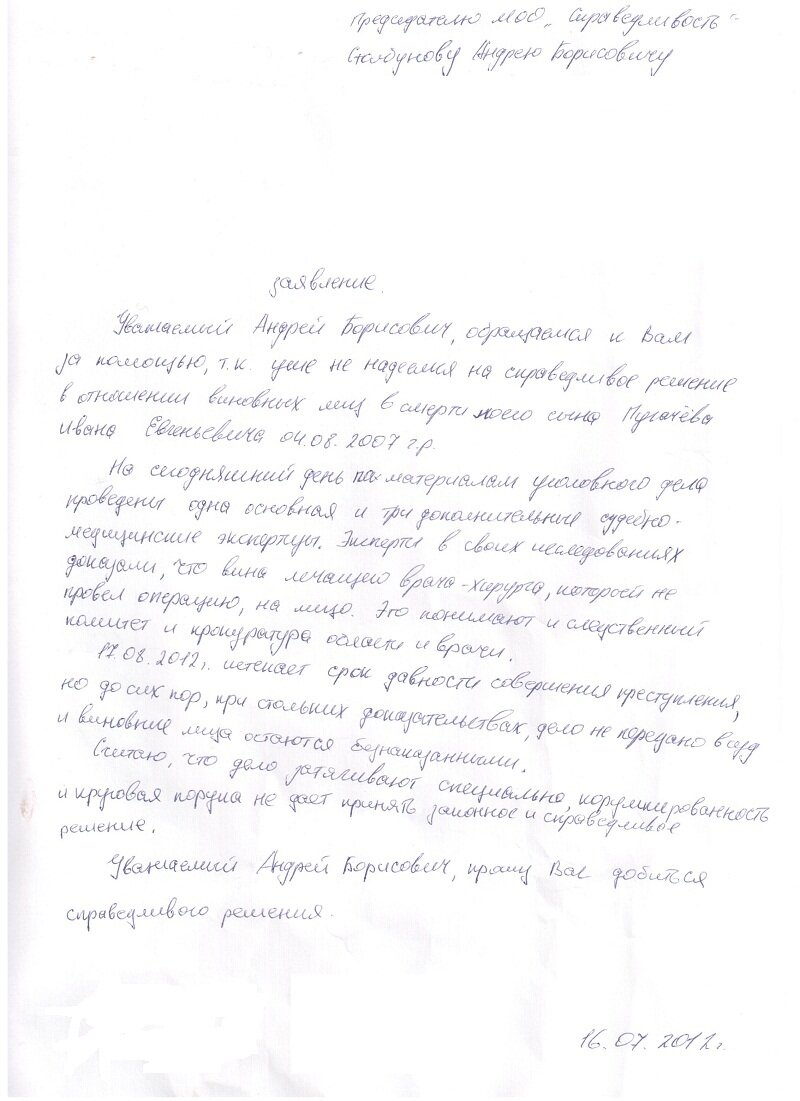 Председателю МОО „Справедливость"
Столбунову Андрею Борисовичу
заявление.
Уважаемый Андрей Борисович, обращаемся к Вам
за помощью, т.к. уже не надеемся на справедливое решение
в отношении виновных лиц в смерти моего сына Пугачёва
Ивана Евгеньевича 04.08.2007 г.р.
На сегодняшний день по материалам уголовного дела
проведены одна основная и три дополнительные судебно-
медицинские экспертизы. Эксперты в своих исследованиях
доказали, что вина лечащего врача-хирурга, которой не
провел операцию, на лицо. Это понимают и следственный
комитет и прокуратура области и врачи.
17.08.2012г. истекает срок давности совершения преступления,
но до сих пор, при стольких доказательствах, дело не передано в суд
и виновные лица остаются безнаказанными.
Считаю, что дело затягивают специально, корумпированность
и круговая порука не дает принять законное и справедливое
решение.
Уважаемый Андрей Борисович, прошу Вас добиться
справедливого решения.
16.07.2012г.